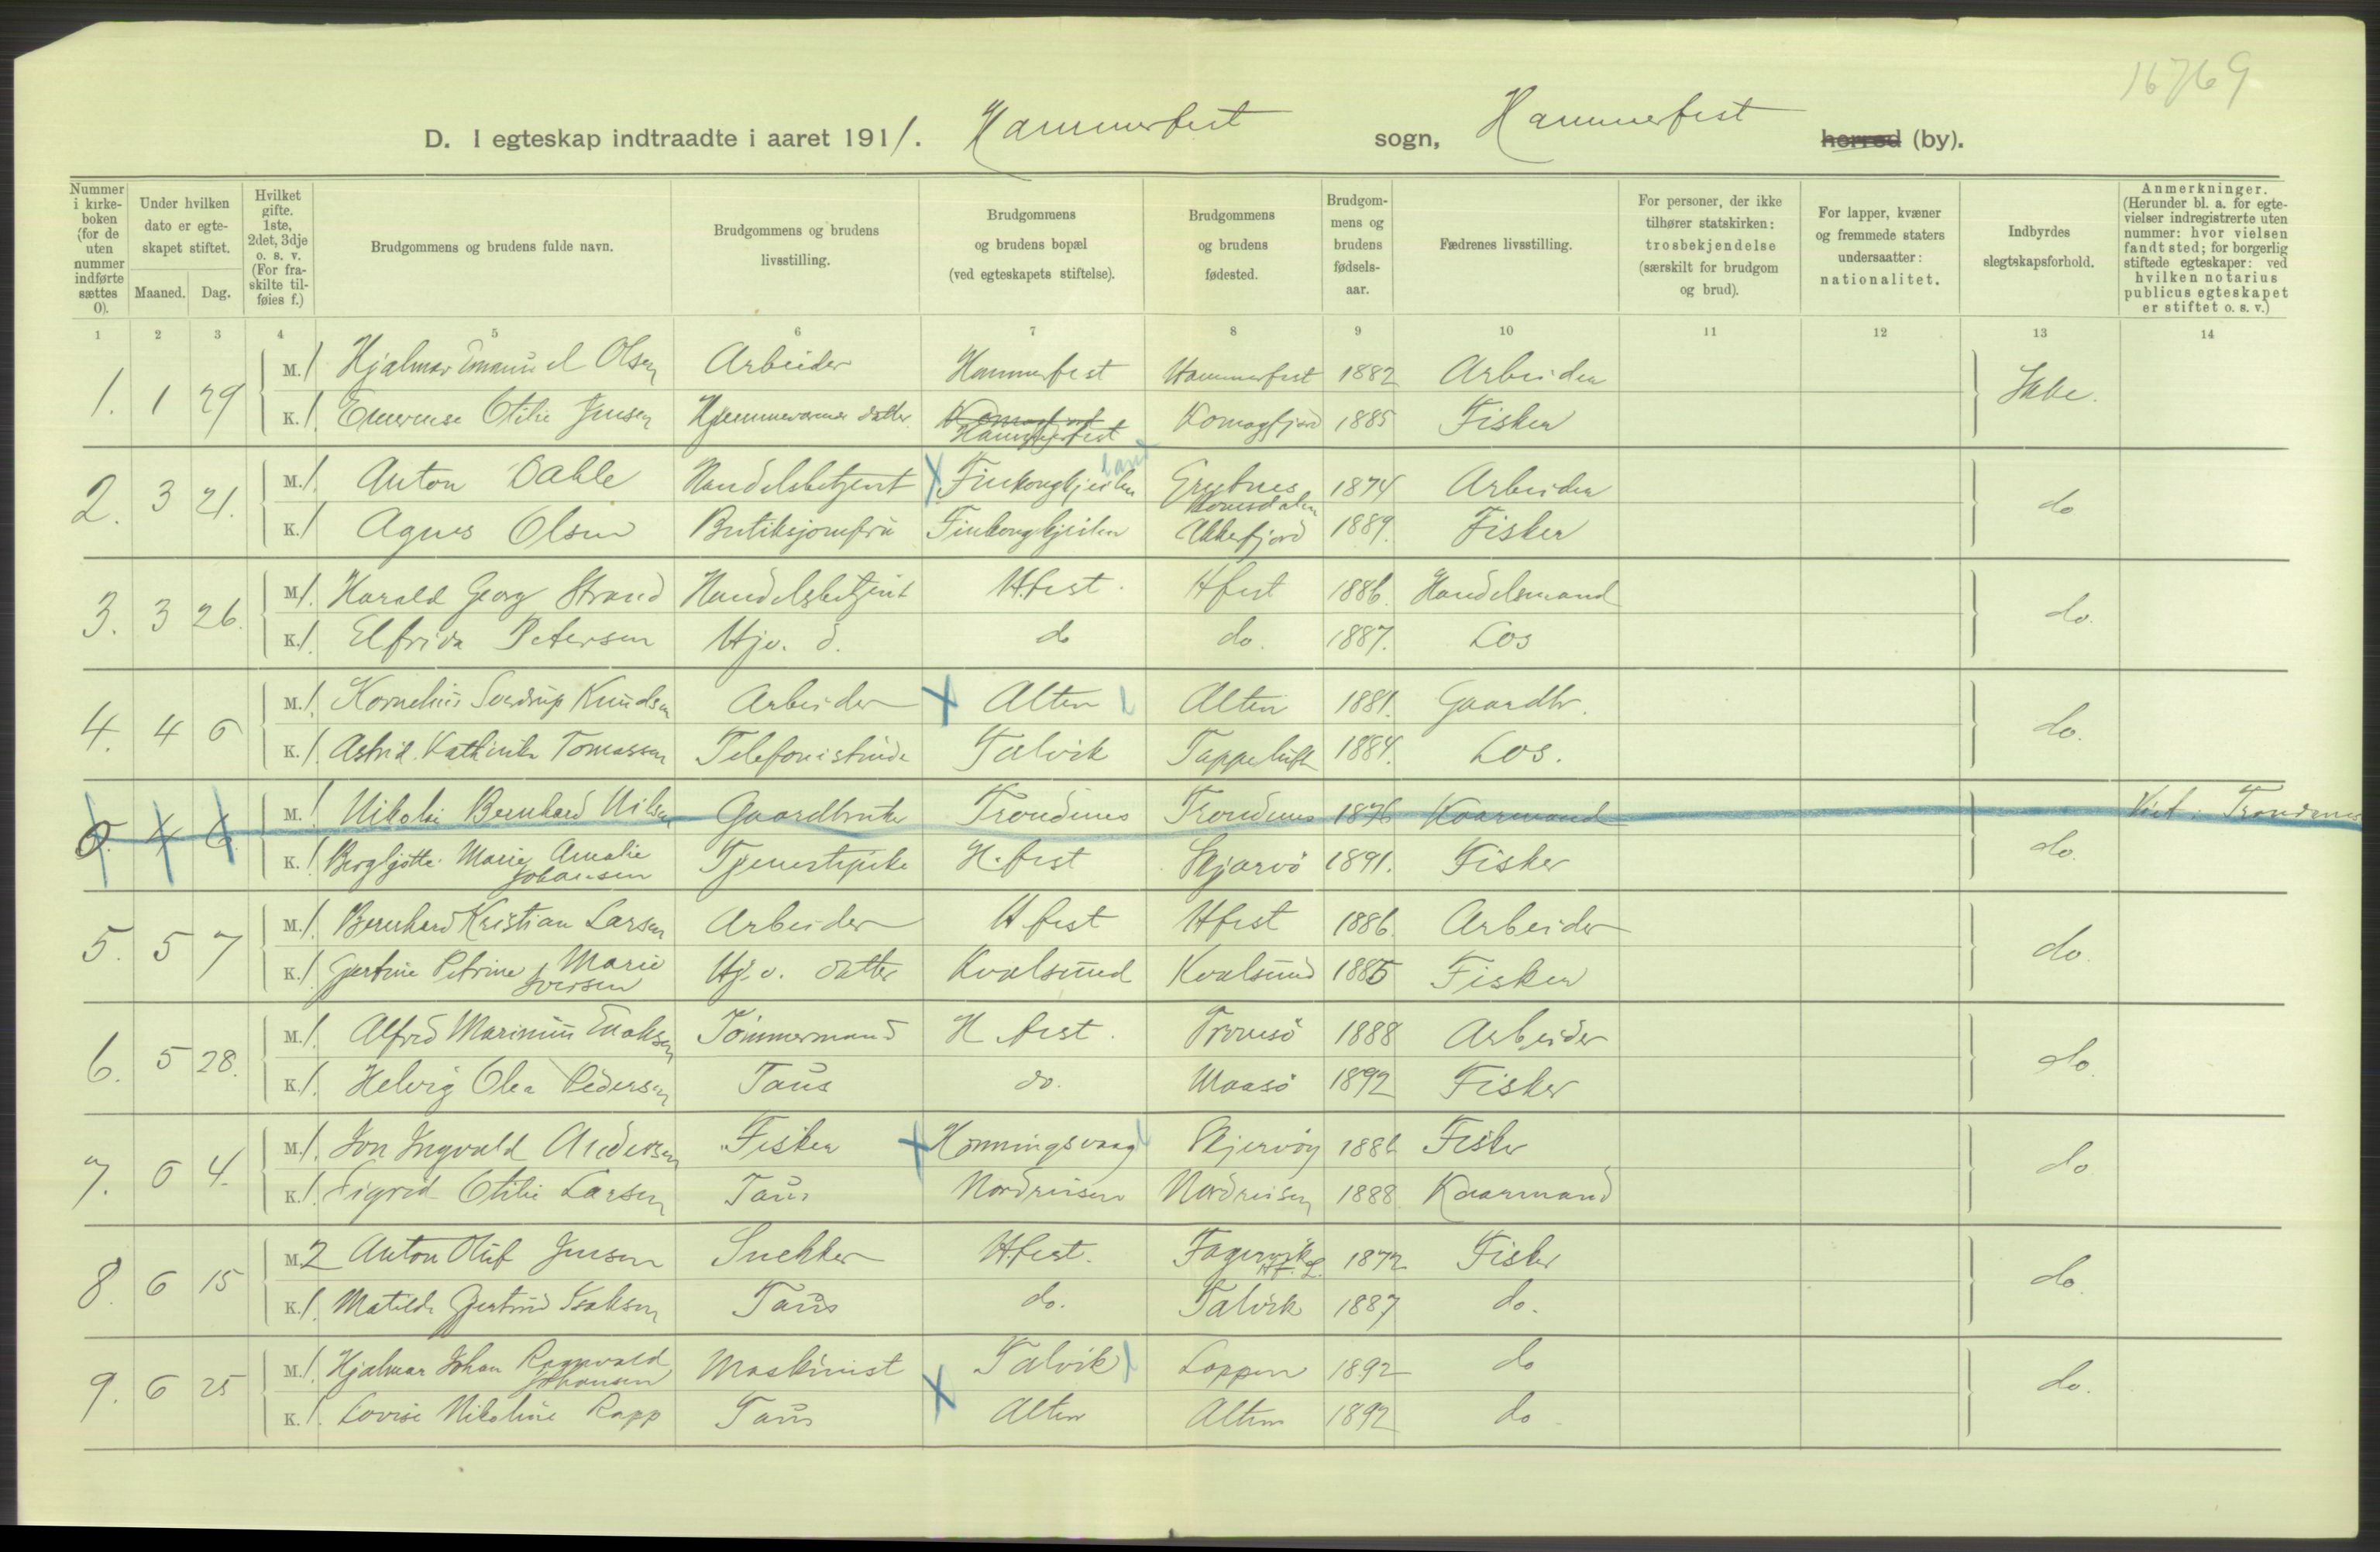 16769
D. I egteskap indtraadte i aaret 1911. Hammerfest sogn, Hammerfest herred (by).
Nummer i kirkeboken (for de uten nummer indførte sættes 0).
Under hvilken dato er egteskapet stiftet.
Maaned. Dag.
Hvilket gifte. 1ste, 2det, 3dje o. s. v. (For fraskilte tilføies f.)
Brudgommens og brudens fulde navn.
Brudgommens og brudens livsstilling.
Brudgommens og brudens bopæl (ved egteskapets stiftelse).
Brudgommens og brudens fødested.
Brudgommens og brudens fødselsaar.
Fædrenes livsstilling.
For personer, der ikke tilhører statskirken: trosbekjendelse (særskilt for brudgom og brud).
For lapper, kvæner og fremmede staters undersaatter: nationalitet.
Indbyrdes slegtskapsforhold.
Anmerkninger. (Herunder bl. a. for egtevielser indregistrerte uten nummer: hvor vielsen fandt sted; for borgerlig stiftede egteskaper: ved hvilken notarius publicus egteskapet er stiftet o. s. v.)
1 2 3 4 5 6 7 8 9 10 11 12 13 14
1. 1 29 M. 1 Hjalmar Emanuel Olsen Arbeider Hammerfest Hammerfest 1882 Arbeider Ikke.
K. 1 Otilie Jensen Hjemmeværende datter. Hammerfest Komagfjord 1885 Fisker
2. 3 21. M. 1. Anton Dahle Handelsbetjent Finkongkjeilen Romsdalen 1874 Arbeider do
K. 1 Agnes Olsen Butiksjomfru Finkongkjeilen Akkerfjord 1889. Fisker
3. 3 26. M. 1. Harald Georg Strand Handelsbetjent H.fest. Hfest 1886. Handelsmand do.
K. 1. Elfrida Petersen Hjv. d. do do. 1887. Los
4. 4 6 M. 1. Kornelius Sverdrup Knudsen Arbeider Alten Alten 1881. Gaardbr. do.
K. 1. Astrid Kathinka Tomassen Telefonistinde Talvik Tappeluft 1884. Los.
0. 4 6 M. 1 Nikolai Bernhard Nilsen Gaardbruker Trondenes Trondenes 1876 Kaarmand do. Viet: Trondenes
K. 1 Bergljotte Marie Amalie Johansen Tjenestepike H.fest Skjervö 1891. Fisker
5. 5 7 M. 1. Bernhard Kristian Larsen Arbeider Hfest Hfest 1886. Arbeider do.
K. 1. Gjertine Petrine Marie Iversen Hj. v. datter Kvalsund Kvalsund 1885 Fisker
6. 5 28. M. 1. Alfred Marinius Enoksen Tömmermand H.fest. Tromsö 1888 Arbeider do.
K. 1. Helvig Olea Pedersen Taus do. Maasö 1892 Fisker
7. 6 4. M. 1. Jon Ingvald Andersen Fisker Honningsvaag Skjervöy 1886 Fisker do.
K. 1. Sigrid Otilie Larsen Taus Nordreisen Nordreisen 1888 Kaarmand
8. 6 15 M. 2 Anton Oluf Jensen Snekker Hfest. Fagervik 1872 Fisker do.
K. 1. Matilde Gjertrud Isaksen Taus do. Talvik 1887 do.
9. 6 25 M. 1. Hjalmar Johan Ragnvald Johansen Maskinist Talvik Loppen 1892 do do.
K. 1. Lovise Nikoline Rapp Taus Alten Alten 1892 do